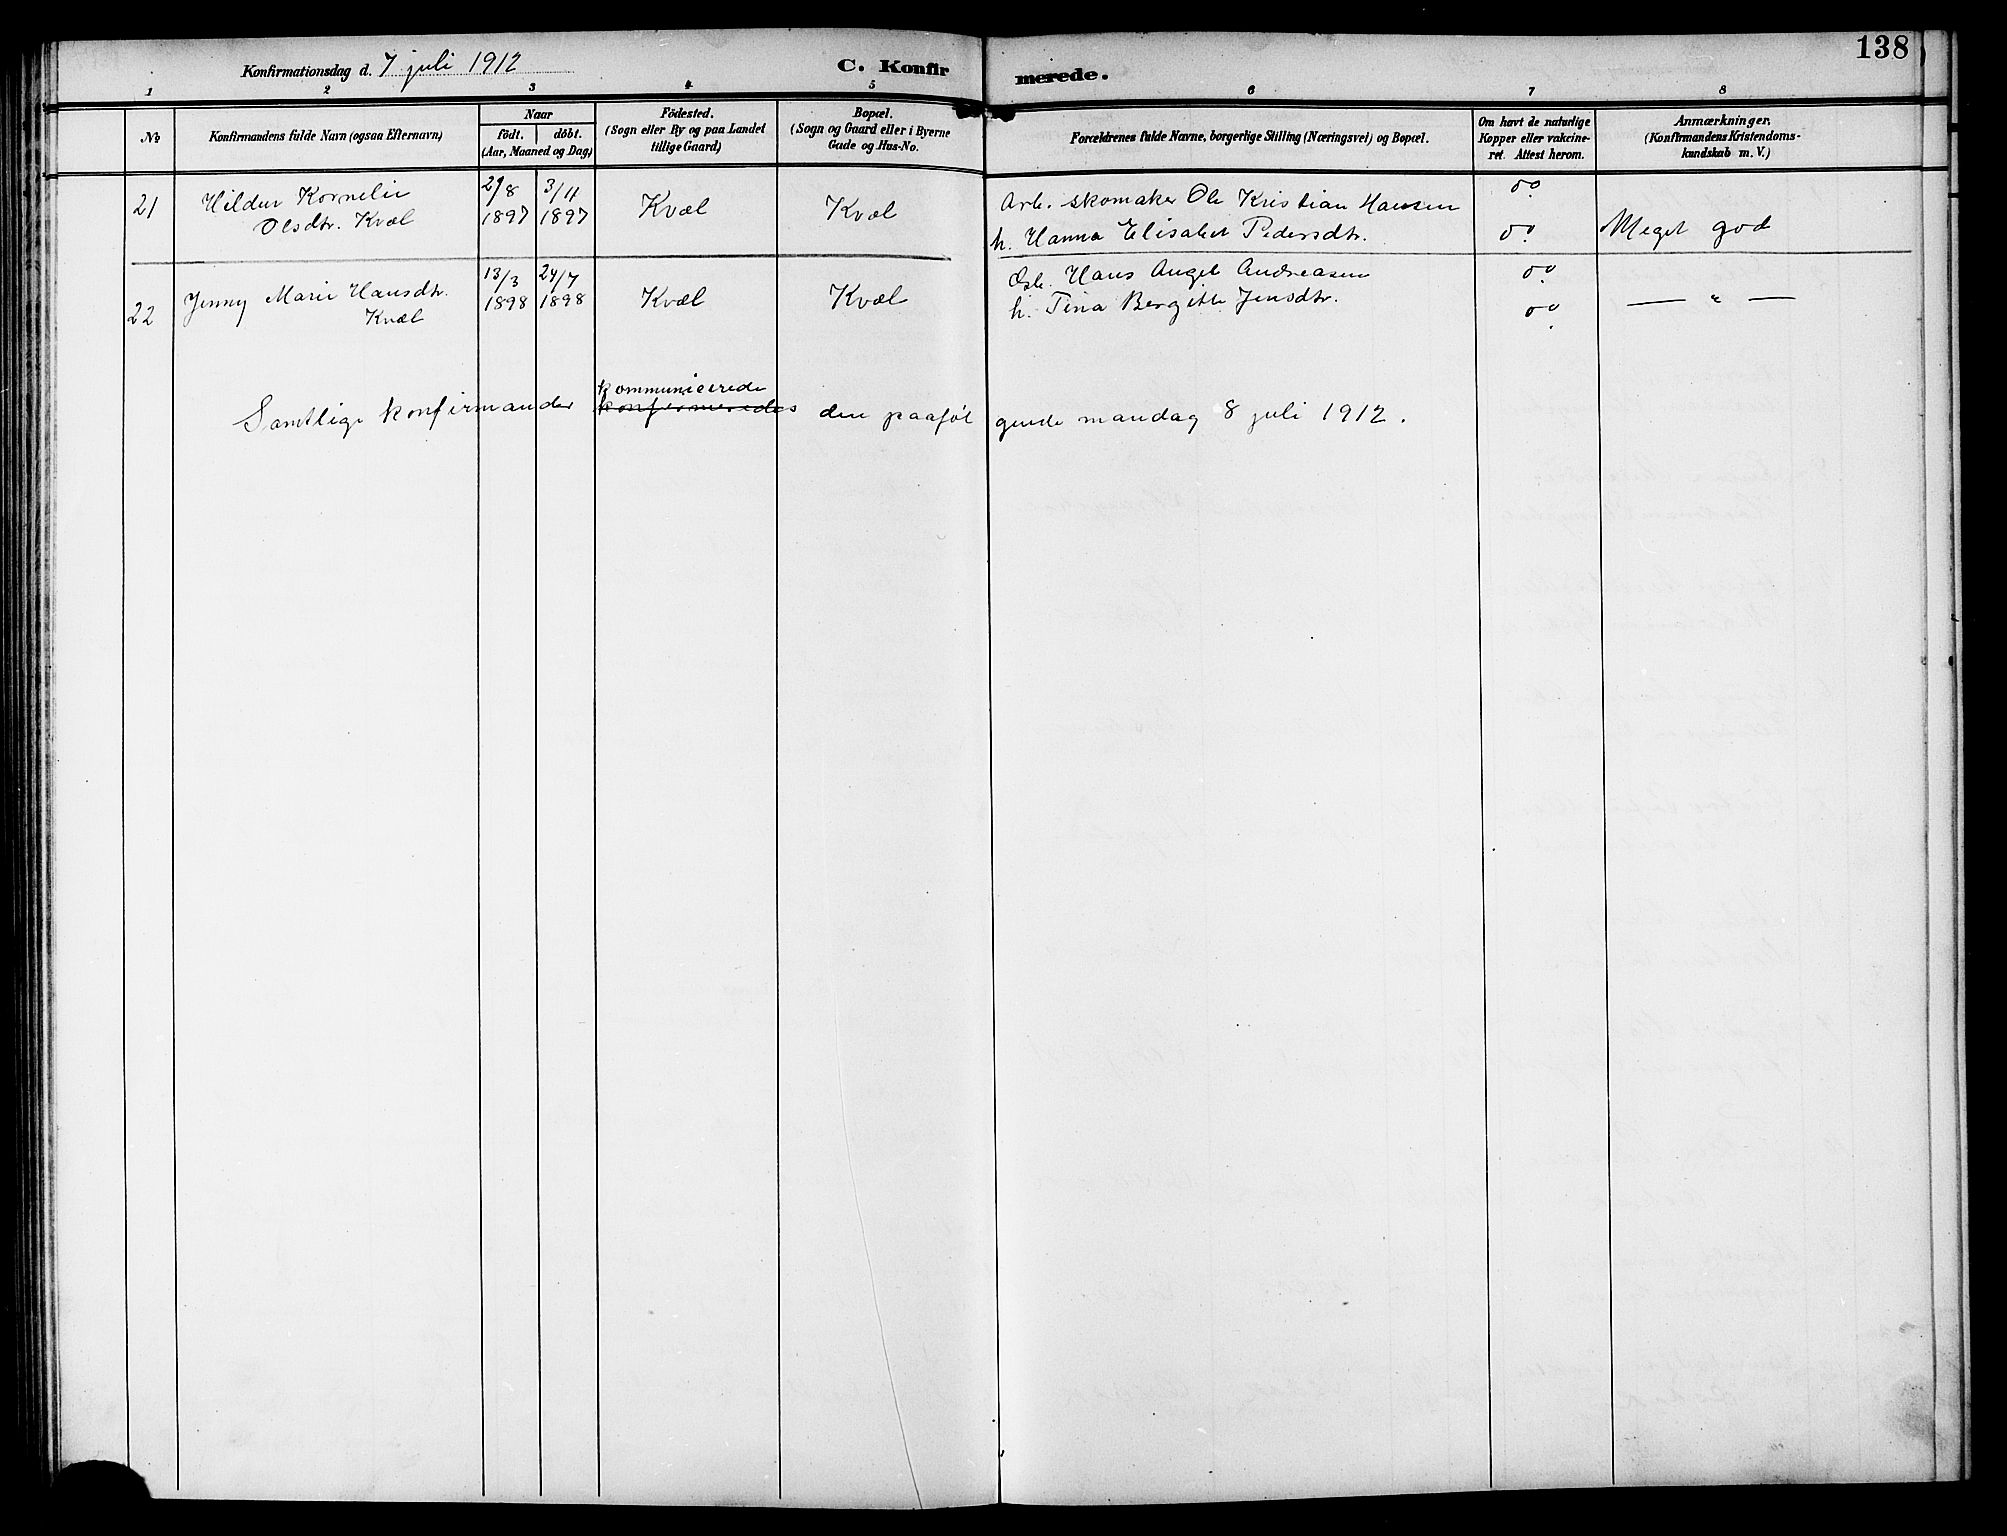 138
Konfirmationsdag d. 7 juli 1912
C. Konfir merede.
1 2 3 4 5 6 7 8
No
Konfirmandens fulde Navn (ogsaa Efternavn)
Naar
født. døbt.
(Aar, Maaned og Dag)
Fødested.
(Sogn eller By og paa Landet
tillige Gaard)
Bopæl.
(Sogn og Gaard eller i Byerne
Gade og Hus-No.
Forældrenes fulde Navne, borgerlige Stilling (Næringsvei) og Bopæl.
Om havt de naturlige
Kopper eller vakcine-
ret. Attest herom.
Anmærkninger.
(Konfirmandens Kristendoms-
kundskab m. V.)
21 Hildur Kornelie
Olsdtr. Kvæl
29/8
1897
3/11
1897
Kvæl
Kvæl
Arb. skomaker Ole Kristian Hansen
h. Hanna Elisabet Pedersdtr.
Meget god
22 Jenny Marie Hansdtr.
Kvæl
13/3
1898
24/7
1898
Kvæl
Kvæl
Hans Angel Andreasen
h. Tina Bergitte Jensdtr.
— " —
kommunicerede
Samtlige konfirmander konfirmeredes den paaføl gende mandag 8 juli 1912.